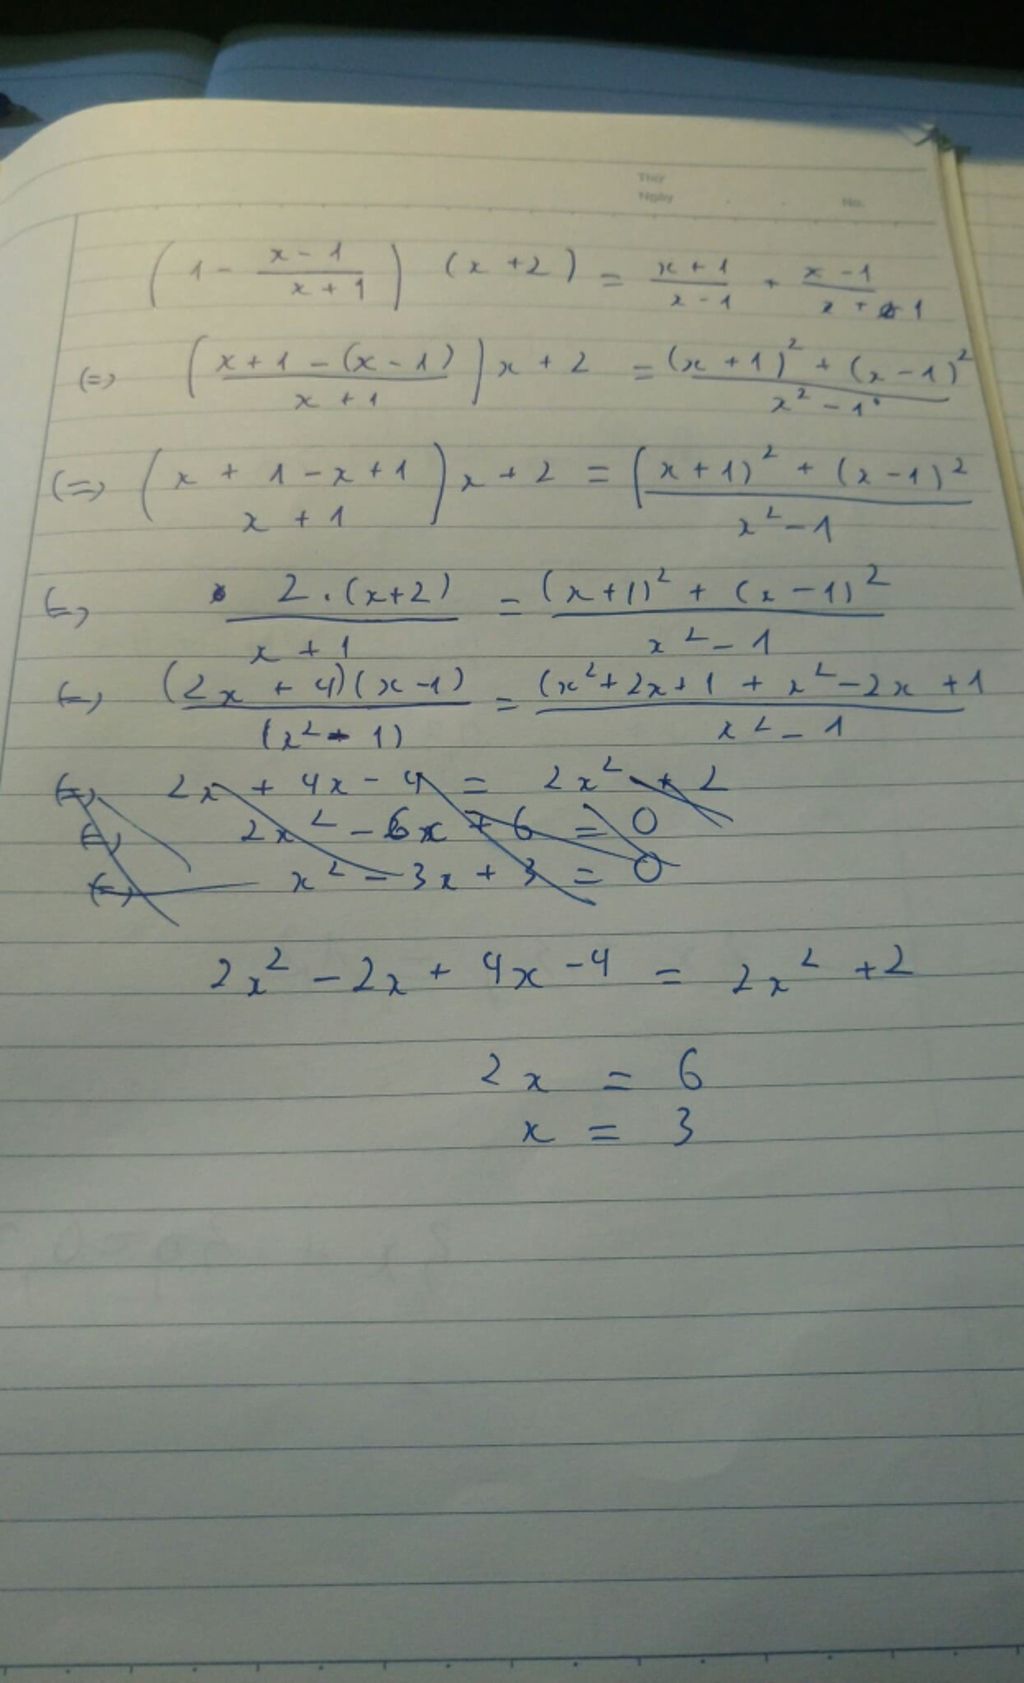 Thứ
Ngày No.
(1 - (x - 1)/(x + 1)) (x + 2) = (x + 1)/(x - 1) + (x - 1)/(x + 1)
(=) ((x + 1 - (x - 1))/(x + 1)) x + 2 = ((x + 1)² + (x - 1)²)/(x² - 1)
(=) (x + 1 - x + 1 / x + 1) x + 2 = ((x + 1)² + (x - 1)²)/(x² - 1)
(=) 2.(x+2)/(x + 1) = ((x+1)² + (x - 1)²)/(x² - 1)
(=) (2x + 4)(x - 1)/(x² - 1) = (x² + 2x + 1 + x² - 2x + 1/(x² - 1)
(=) 2x + 4x - 4 = 2x² + 2
(=) 2x² - 6x + 6 = 0
(=) x² - 3x + 3 = 0
2x² - 2x + 4x - 4 = 2x² + 2
2x = 6
x = 3